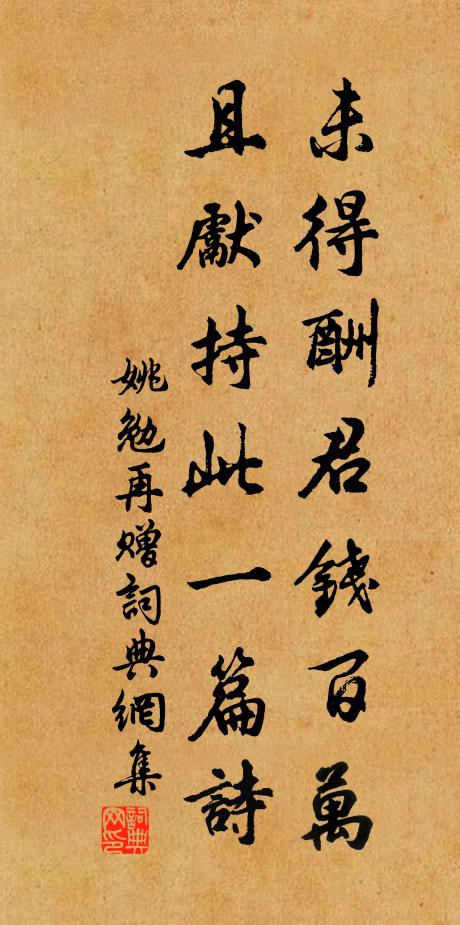 未得酬君錢百萬
且獻持此一篇詩
姚勉再贈詞典網集
詞典網印